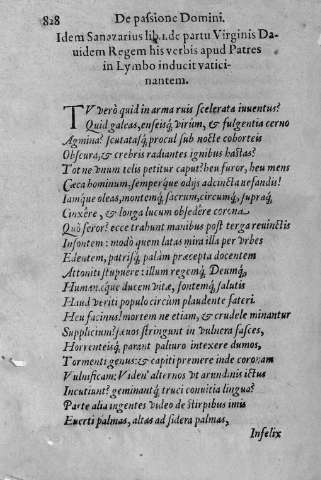 828 De passione Domini.
Idem Sanazarius lib. 1. de partu Virginis Da-
uidem Regem his verbis apud Patres
in Lymbo inducit vatici-
nantem.
TV verò quid in arma ruis scelerata iuuentus?
Quid galeas, enseisq́; virûm, & fulgentia cerno
Agmina? scutatasq́; procul sub nocte cohorteis
Obscura, & crebris radiantes ignibus hastas?
Tot ne vnum telis petitur caput? heu furor, heu mens
Cæca hominum, semperque odijs adcincta nefandis!
Iamque oleas, montemq́; sacrum, circumq́; supraq́;
Cinxêre, & longa lucum obsedêre corona.
Quò feror? ecce trahunt manibus post terga reuinctis
Insontem: modò quem latas mira illa per vrbes
Edentem, patrijsq́; palàm præcepta docentem
Attoniti stupuere: illum regemq́; Deumq́;
Humanæque ducem vitæ, fontemq́; salutis
Haud veriti populo circùm plaudente fateri.
Heu facinus! mortem ne etiam, & crudele minantur
Supplicium? sæuos stringunt in vulnera fasces,
Horrenteisq́; parant paliuro intexere dumos,
Tormenti genus: & capiti premere inde coronam
Vulnificam: Viden' alternos vt arundinis ictus
Incutiunt? geminantq́; truci conuitia lingua?
Parte alia ingentes video de stirpibus imis
Euerti palmas, altas ad sidera palmas,
Infelix